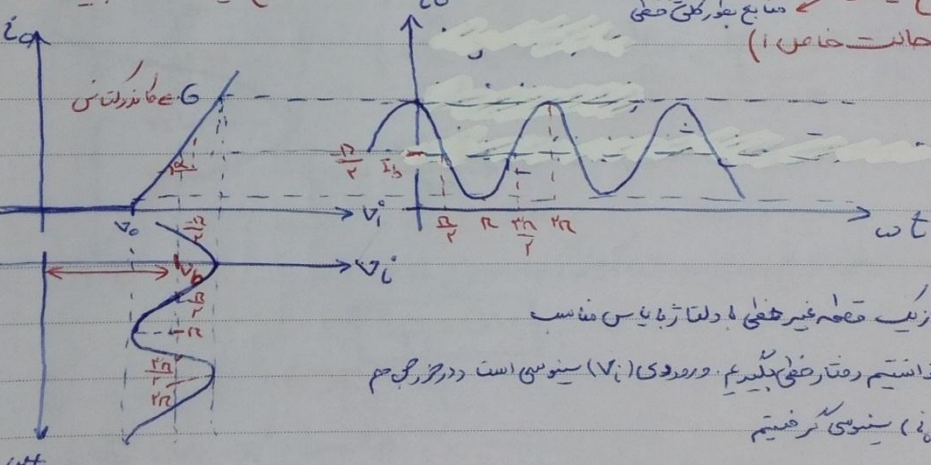 منابع بطور کلی خطی
حالت خاص ۱)
i₀
G = کاندوکتانس
α
V₀
Vᵢ
π/۲
I_b
π/۲
π
۳π/۲
۲π
ωt
π/۲
V_b
Vᵢ
π/۲
π
۳π/۲
۲π
زیک قطعه غیر خطی با ولتاژ بایاس مناسب
انستیم رفتار خطی بگیریم. ورودی (Vᵢ) سینوسی است و در خروجی هم
سینوسی گرفتیم
ωt